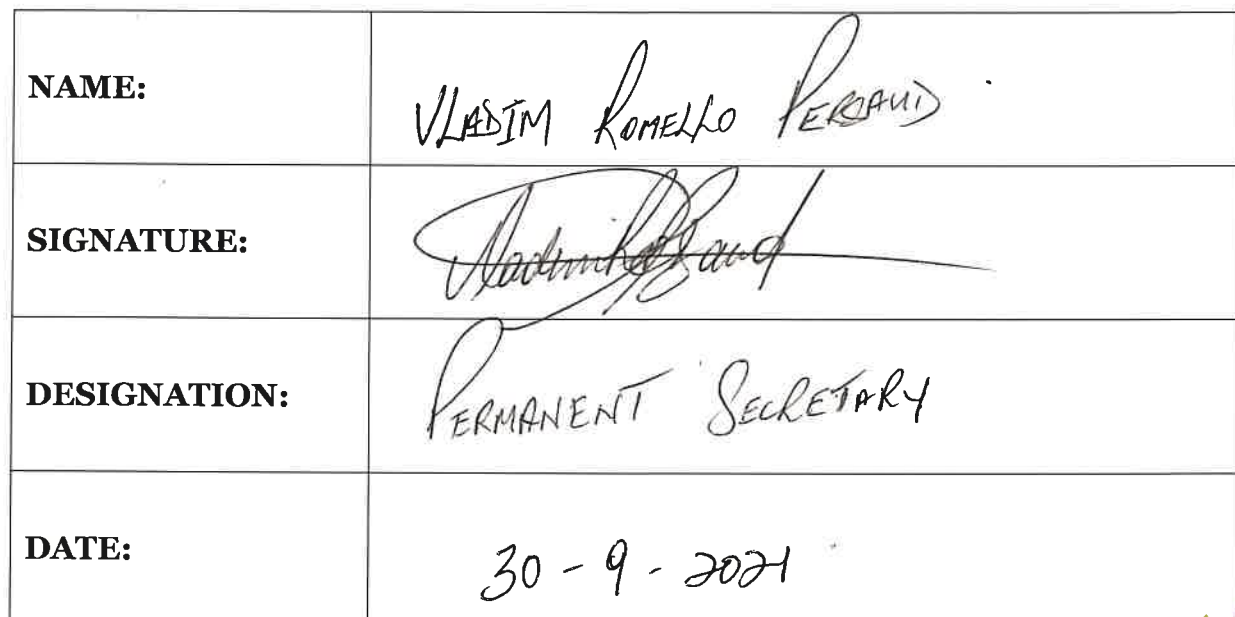 NAME: VLADIM ROMELLO PERSAUD
SIGNATURE:
DESIGNATION: PERMANENT SECRETARY
DATE: 30 - 9 - 2021